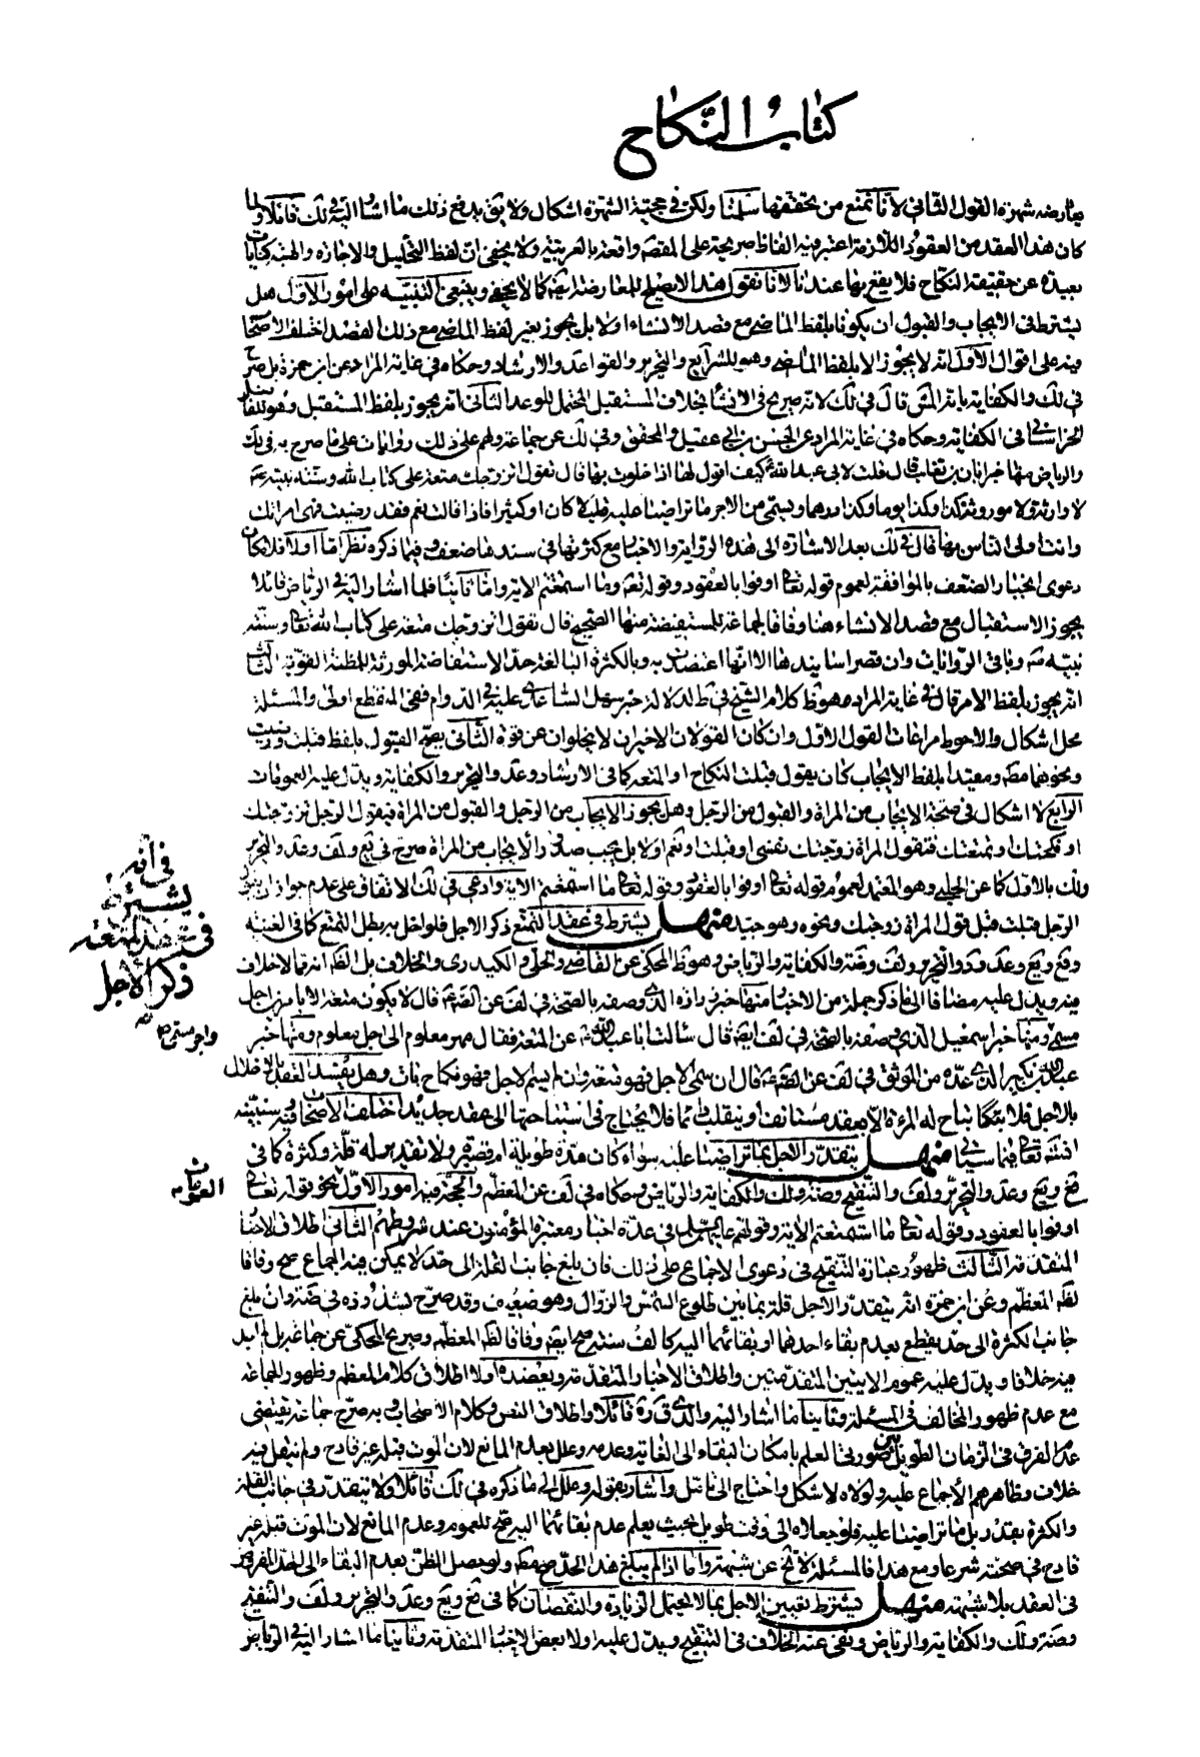 كتاب النكاح
يعارضه شهرة القول الثاني لأنا نمنع من تحققها سلمنا ولكن في حجية الشهرة اشكال ولا يق يدفع ذلك ما اشار اليه في لك قائلا ولما
كان هذا العقد من العقود اللازمة اعتبر فيه الفاظ صريحة على المقصد واقعة بالعربية ولا يخفى ان لفظ التحليل والاجارة والهبة كنايات
بعيدة عن حقيقة النكاح فلا يقع بها عندنا لأنا نقول هذا لا يصلح للمعارضة ايضا كما لا يخفى وينبغي التنبيه على امور الأول هل
يشترط في الايجاب والقبول ان يكونا بلفظ الماضي مع قصد الانشاء اولا بل يجوز بغير لفظ الماضي مع ذلك القصد اختلف الاصحاب
فيه على اقوال الأول انه لا يجوز الا بلفظ الماضي وهو للشرايع والتحرير والقواعد والارشاد وحكاه في غاية المراد عن ابن حمزة بل صرح
في لك والكفاية بانه المش قال في لك لانه صريح في الانشاء بخلاف المستقبل المحتمل للوعد الثاني انه يجوز بلفظ المستقبل وهو للفاضل
الخراساني في الكفاية وحكاه في غاية المراد عن الحسن بن ابي عقيل والمحقق وفي لك عن جماعة ولهم على ذلك روايات على ما صرح به في لك
والرياض منها خبر ابان بن تغلب قال قلت لابي عبد الله ع كيف اقول لها اذا خلوت بها قال تقول اتزوجك متعة على كتاب الله وسنة نبيه ص
لا وارثة ولا موروثة كذا وكذا يوما وكذا درهما وتسمي من الاجر ما تراضيتما عليه قليلا كان او كثيرا فاذا قالت نعم فقد رضيت فهي امراتك
وانت اولى الناس بها قال في لك بعد الاشارة الى هذه الرواية والاخبار مع كثرتها في سندها ضعف وفيما ذكره نظر اما اولا فلامكان
دعوى انجبار الضعف بالموافقة لعموم قوله تعالى اوفوا بالعقود وقوله تعالى وما استمتعتم الاية واما ثانيا فلما اشار اليه في الرياض قائلا
يجوز الاستقبال مع قصد الانشاء هنا وفاقا لجماعة للمستفيضة منها الصحيح قال تقول اتزوجك متعة على كتاب الله تعالى وسنة
نبيه ص وباقي الروايات وان قصر اسانيدها الا انها اعتضدت به وبالكثرة البالغة حد الاستفاضة المورثة للمظنة القوية الثالث
انه يجوز بلفظ الامر قال في غاية المراد وهو ظ كلام الشيخ في ط لدلالة خبر سهل الساعدي عليه في الدوام ففي المنقطع اولى والمسئلة
محل اشكال والاحوط مراعات القول الاول وان كان القولان الاخيران لا يخلوان عن قوة الثاني يصح القبول بلفظ قبلت ورضيت
ونحوهما مطلقا ومقيدا بلفظ الايجاب كان يقول قبلت النكاح او المتعة كما في الارشاد وعد والتحرير والكفاية ويدل عليه العمومات
الرابع لا اشكال في صحة الايجاب من المراة والقبول من الرجل وهل يجوز الايجاب من الرجل والقبول من المراة فيقول الرجل تزوجتك
او نكحتك وتمتعتك فتقول المراة زوجتك نفسي او قبلت او نعم اولا بل يجب صدور الايجاب من المراة صرح في يع ولف وعد والتحرير
ولك بالاول كما عن الحلي وهو المعتمد لعموم قوله تعالى اوفوا بالعقود وقوله تعالى ما استمتعتم الاية وادعى في لك الاتفاق على عدم جواز ان يقول
الرجل قبلت قبل قول المراة زوجتك ونحوه وهو جيد منهل يشترط في عقد التمتع ذكر الاجل فلو اخل به بطل التمتع كما في الغنية
وقع ويع وعد ود والتحرير ولف وضة والكفاية والرياض وهو ظ المحكي عن القاضي والحلي والكيدري والخلاف بل الظ انه مما لا خلاف
فيه ويدل عليه مضافا الى ما ذكر جملة من الاخبار منها خبر زرارة الذي وصفه بالصحة في لف عن الصادق ع قال لا يكون متعة الا بامرين اجل
مسمى ومنها خبر اسمعيل الذي وصفه بالصحة في لف ايضا قال سالت ابا عبد الله ع عن المتعة فقال مهر معلوم الى اجل معلوم ومنها خبر
عبد الله بن بكير الذي عده من الموثق في لف عن الصادق ع قال ان سمي الاجل فهو متعة وان لم يسم الاجل فهو نكاح بات وهل يفسد العقد بالاخلال
بالاجل فلا يتباح له المرءة الا بعقد مستانف او ينقلب دائما فلا يحتاج في استباحتها الى عقد جديد اختلف الاصحاب فيه سنبينه
انشاء تعالى فيما سياتي منهل يتقدر الاجل بما تراضيا عليه سواء كان مدة طويلة ام قصيرة ولا تقدير له قلة وكثرة كما في
يع وعد والتحرير ولف والتنقيح وضة ولك والكفاية والرياض وحكاه في لف عن المعظم والحجة فيه امور الأول نحو قوله تعالى
اوفوا بالعقود وقوله تعالى ما استمتعتم الاية وقولهم عليهم السلام في عدة اخبار معتبرة المؤمنون عند شروطهم الثاني اطلاق الاخبار
المتقدمة الثالث ظهور عبارة التنقيح في دعوى الاجماع على ذلك فان بلغ جانب القلة الى حد لا يمكن فيه الجماع صح وفاقا
لظ المعظم وعن ابن حمزة انه يتقدر الاجل قلة بما بين طلوع الشمس والزوال وهو ضعيف وقد صرح بشذوذه في ضة وان بلغ
جانب الكثرة الى حد يقطع بعدم بقاء احدهما او بقائهما اليه كالف سنة صح ايضا وفاقا لظ المعظم وصريح المحكي عن جماعة بل لم اجد
فيه خلافا ويدل عليه عموم الايتين المتقدمتين واطلاق الاخبار المتقدمة ويعضده اولا اطلاق كلام المعظم وظهور الجماعة
مع عدم ظهور المخالف في المسئلة وثانيا ما اشار اليه والدي قدره قائلا واطلاق النص وكلام الاصحاب وبه صرح جماعة يقتضي
عدم الفرق في الزمان الطويل بين صورتي العلم بامكان البقاء الى الغاية وعدمه وعلل بعدم المانع لان الموت قبله غير قادح ولم ينقل فيه
خلاف وظاهرهم الأجماع عليه ولولاه لاشكل واحتاج الى تامل واشار بقوله وعلل الى ما ذكره في لك قائلا ولا يتقدر في جانب القلة
والكثرة بقدر بل ما تراضيا عليه فلو جعلاه الى وقت طويل بحيث يعلم عدم بقائهما اليه صح للعموم وعدم المانع لان الموت قبله غير
قادح في صحته شرعا ومع هذا فالمسئلة لا تخ عن شبهة واما اذا لم يبلغ هذا الحد صح مطلقا ولو حصل الظن بعدم البقاء الى الحد المقرر
في العقد بلا شبهة منهل يشترط تعيين الاجل بما لا يحتمل الزيادة والنقصان كما في يع وعد والتحرير ولف والتنقيح
وضة ولك والكفاية والرياض ونفى عنه الخلاف في التنقيح ويدل عليه اولا بعض الاخبار المتقدمة وثانيا ما اشار اليه في الرياض
في انه
يشترط
في عقد المتعة
ذكر الأجل
العمومات